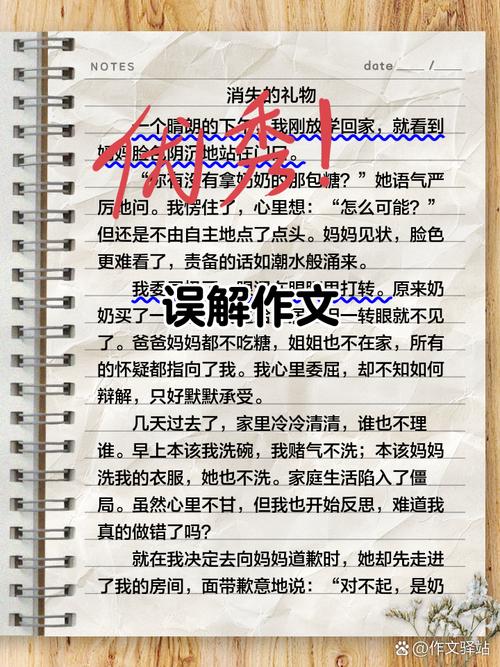 NOTES
date ___ /__
消失的礼物
一个晴朗的下午，我刚放学回家，就看到
妈妈脸色阴沉地站在门口。
优秀！
“你有没有拿奶奶的那包糖？”她语气严
厉地问。我愣住了，心里想：“怎么可能？”
但还是不由自主地点了点头。妈妈见状，脸色
更难看了，责备的话如潮水般涌来。
打转。原来奶
误解作文
奶买了一
一转眼就不见
了。爸爸妈妈都不吃糖，姐姐也不在家，所有
的怀疑都指向了我。我心里委屈，却不知如何
辩解，只好默默承受。
几天过去了，家里冷冷清清，谁也不理
谁。早上本该我洗碗，我赌气不洗；本该妈妈
洗我的衣服，她也不洗。家庭生活陷入了僵
局。虽然心里不甘，但我也开始反思，难道我
真的做错了吗？
就在我决定去向妈妈道歉时，她却先走进
了我的房间，面带歉意地说：“对不起，是奶
@作文驿站